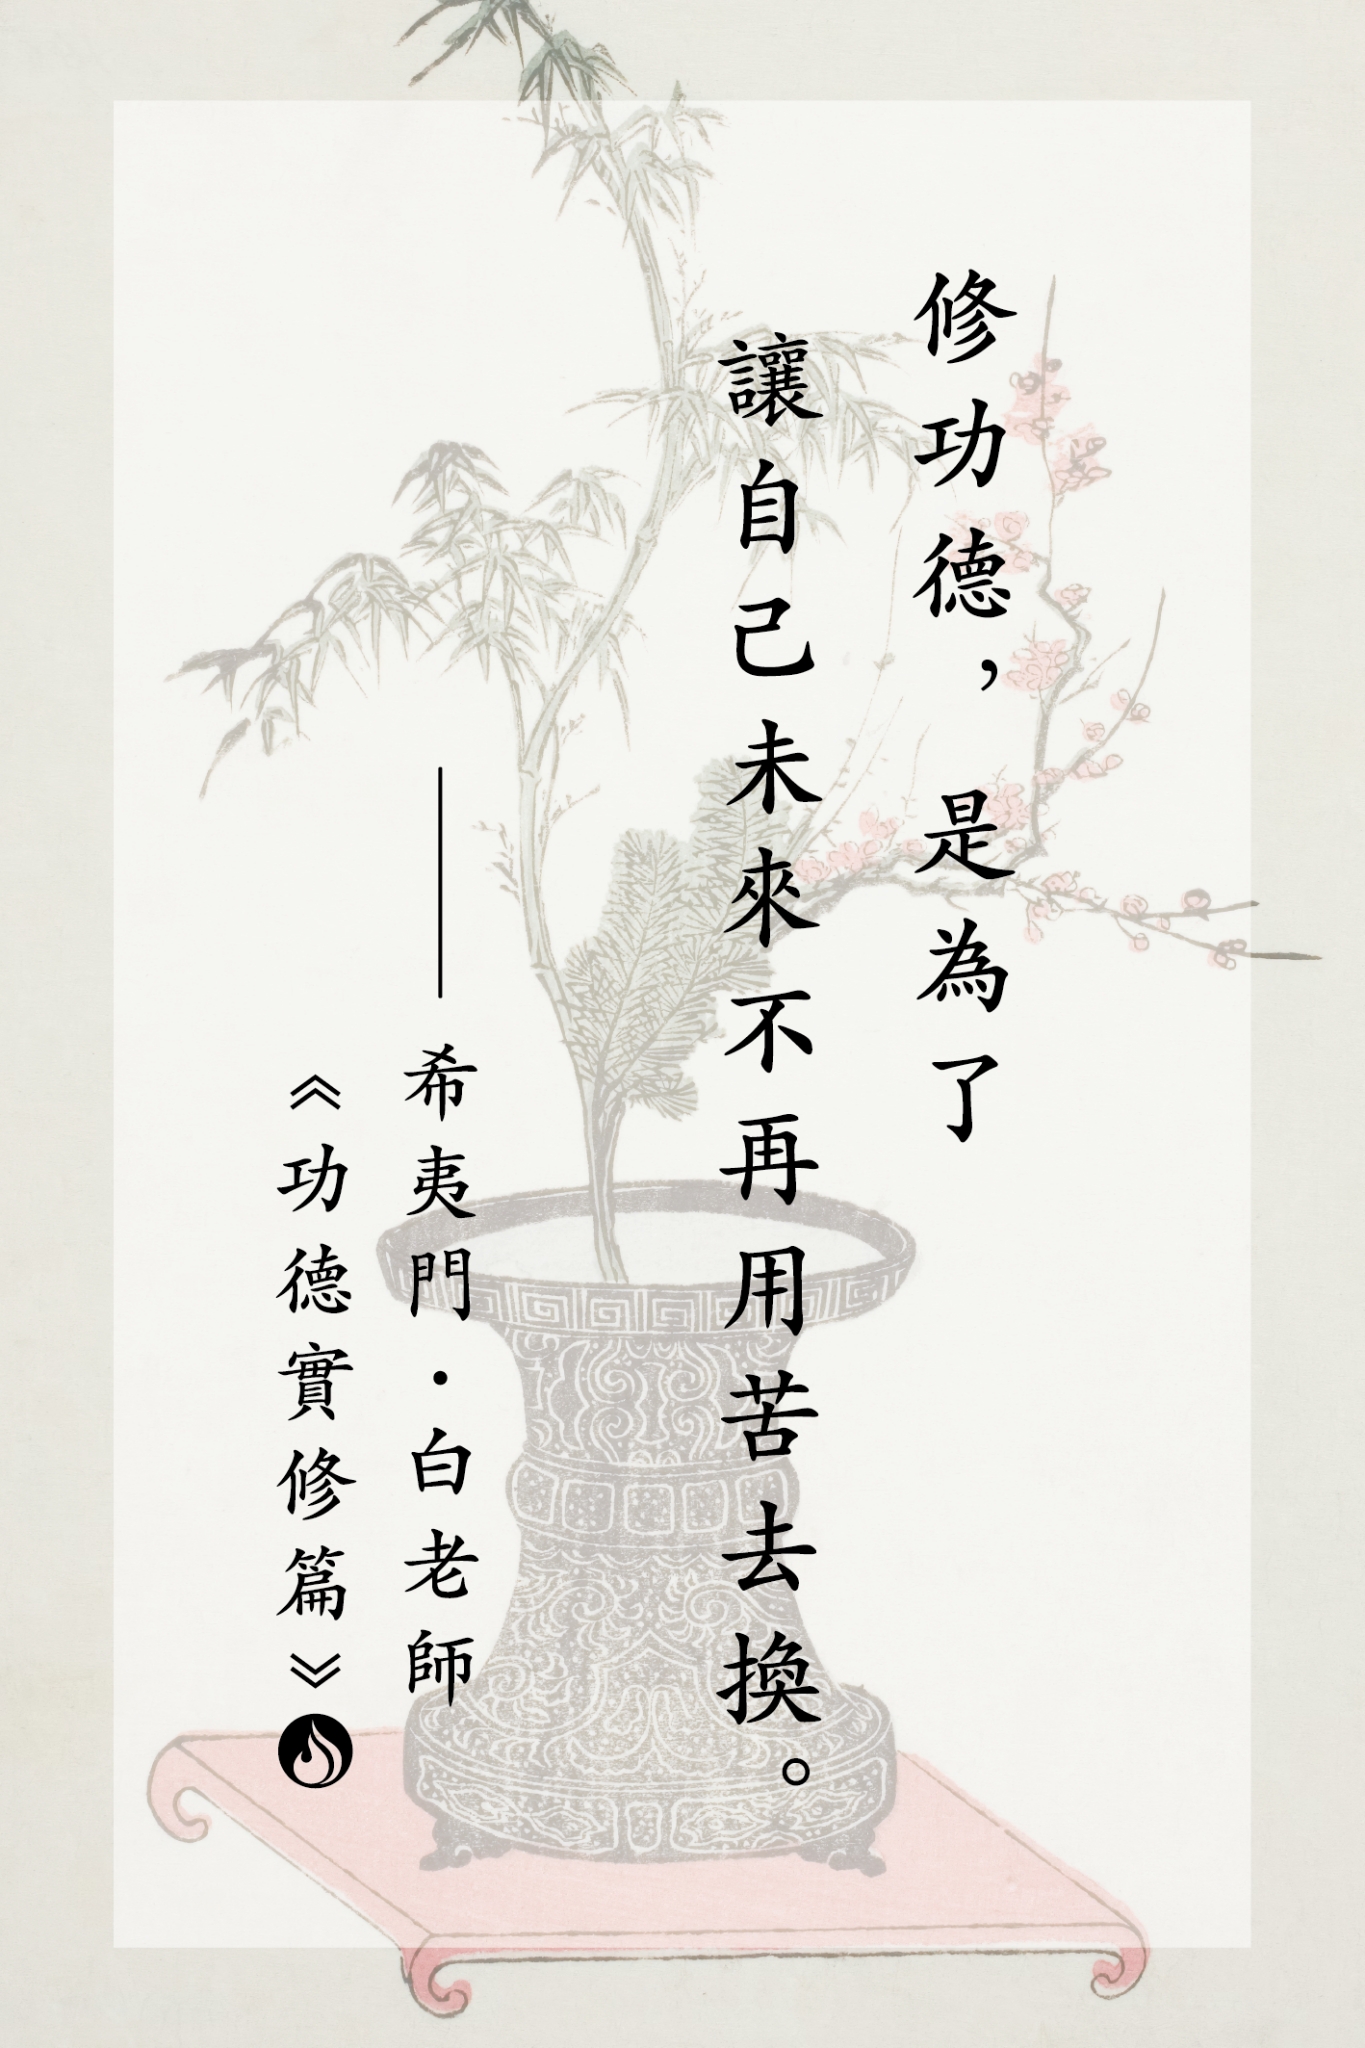 修功德，是為了
讓自己未來不再用苦去換。
——希夷門・白老師
《功德實修篇》